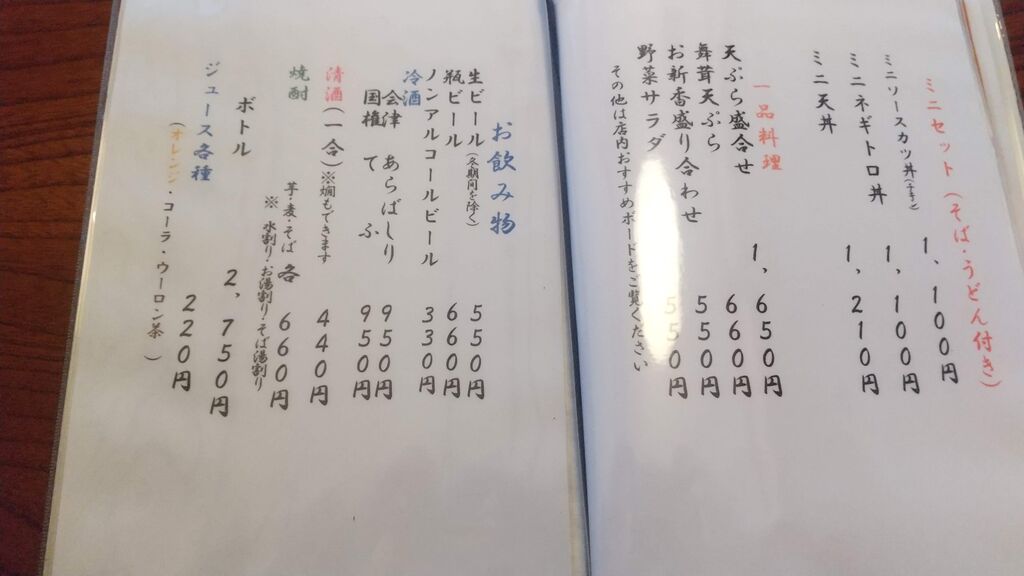 ミニセット(そば・うどん付き)
ミニソースカツ丼 1,100円
ミニネギトロ丼 1,100円
ミニ天丼 1,210円
一品料理
天ぷら盛合せ 1,650円
舞茸天ぷら 660円
お新香盛り合わせ 550円
野菜サラダ 550円
その他は店内おすすめボードをご覧ください
お飲み物
生ビール(冬期間を除く) 550円
瓶ビール 660円
ノンアルコールビール 330円
冷酒
会津 あらばしり 950円
国権 てふ 950円
清酒(一合)※燗もできます 440円
焼酎 芋・麦・そば 各 660円
※ 水割り・お湯割り・そば湯割り
ボトル 2,750円
ジュース各種 220円
(オレンジ・コーラ・ウーロン茶)